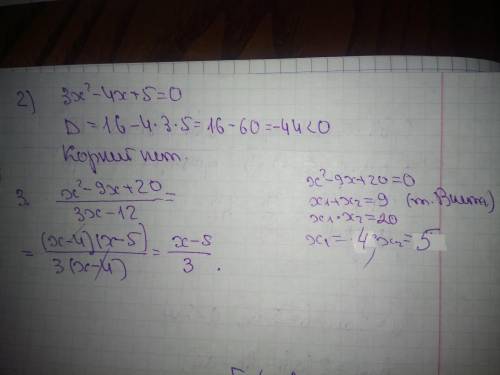 2) 3x²-4x+5=0
D=16-4·3·5=16-60=-44<0
Корней нет.
3. (x²-9x+20)/(3x-12)=
=((x-4)(x-5))/(3(x-4))=(x-5)/3.
x²-9x+20=0
x₁+x₂=9 (т. Виета)
x₁·x₂=20
x₁=4, x₂=5